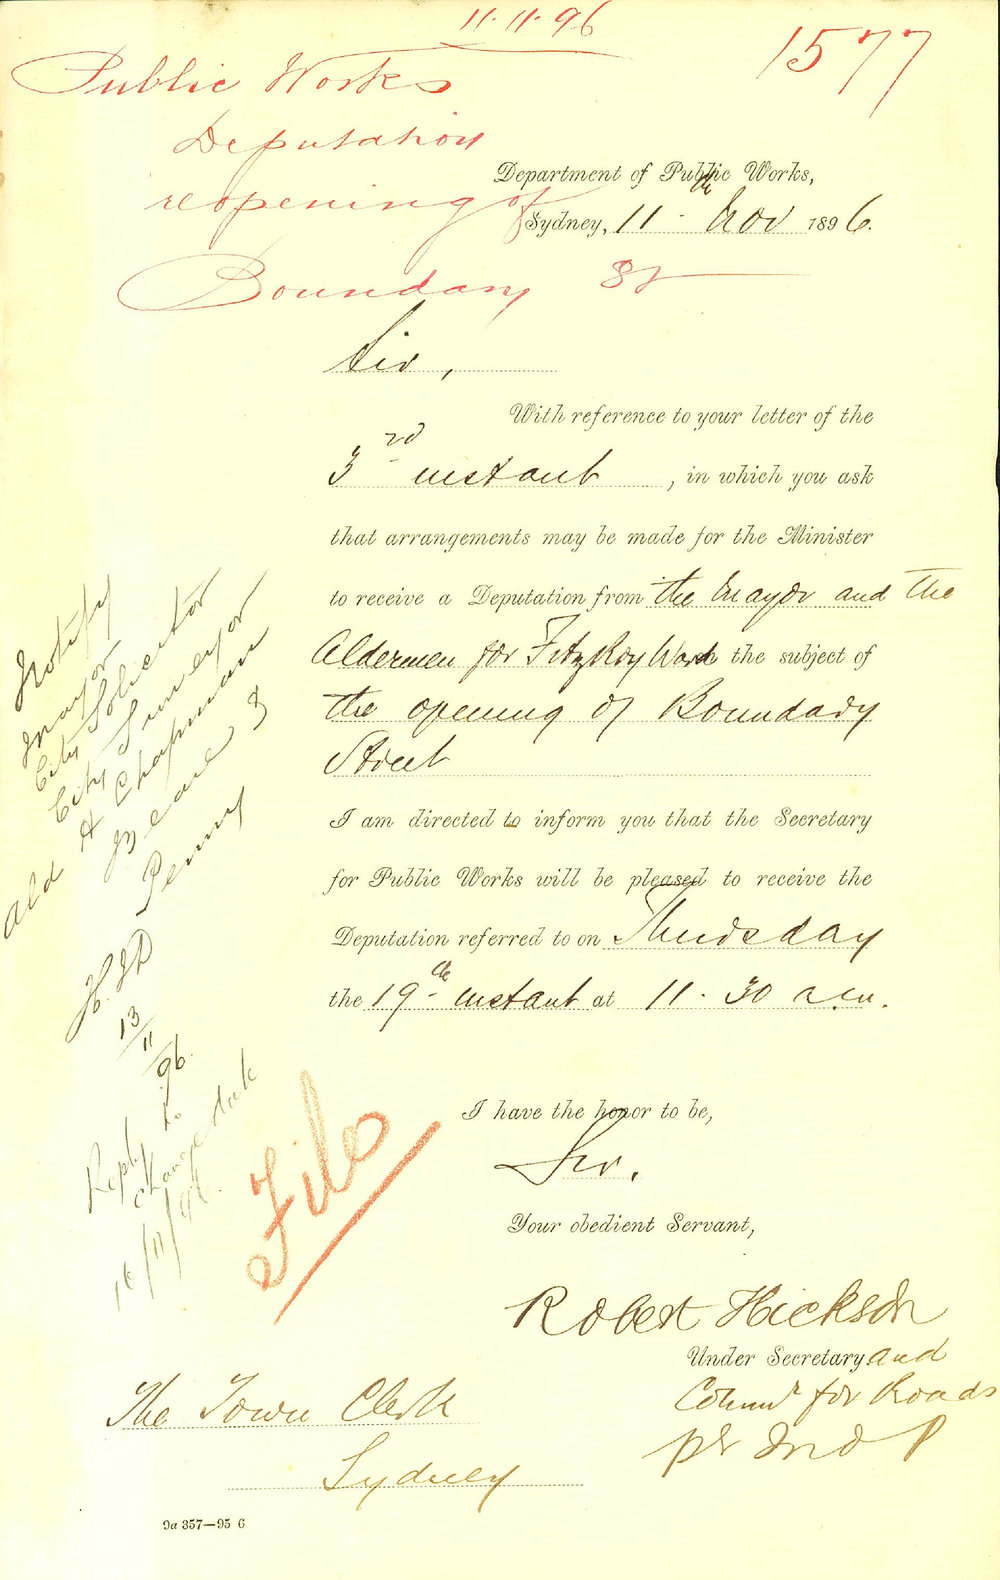 11.11.96
1577
Public Works
Deputation
reopening of
Boundary St
Department of Public Works,
Sydney, 11th Nov 1896.
Sir,
With reference to your letter of the
3rd instant, in which you ask
that arrangements may be made for the Minister
to receive a Deputation from the Mayor and the
Aldermen for FitzRoy Ward the subject of
the opening of Boundary
Street
I am directed to inform you that the Secretary
for Public Works will be pleased to receive the
Deputation referred to on Thursday
the 19th instant at 11.30 a.m.
I have the honor to be,
Sir,
Your obedient Servant,
Robert Hickson
Under Secretary and
Commr for Roads
The Town Clerk
Sydney
9a 357—95 G
Notify
Mayor
City Solicitor
City Surveyor
Ald A Chapman
Beare &
Penny
13/11/96
Reply to
change date
16/11/96.
File